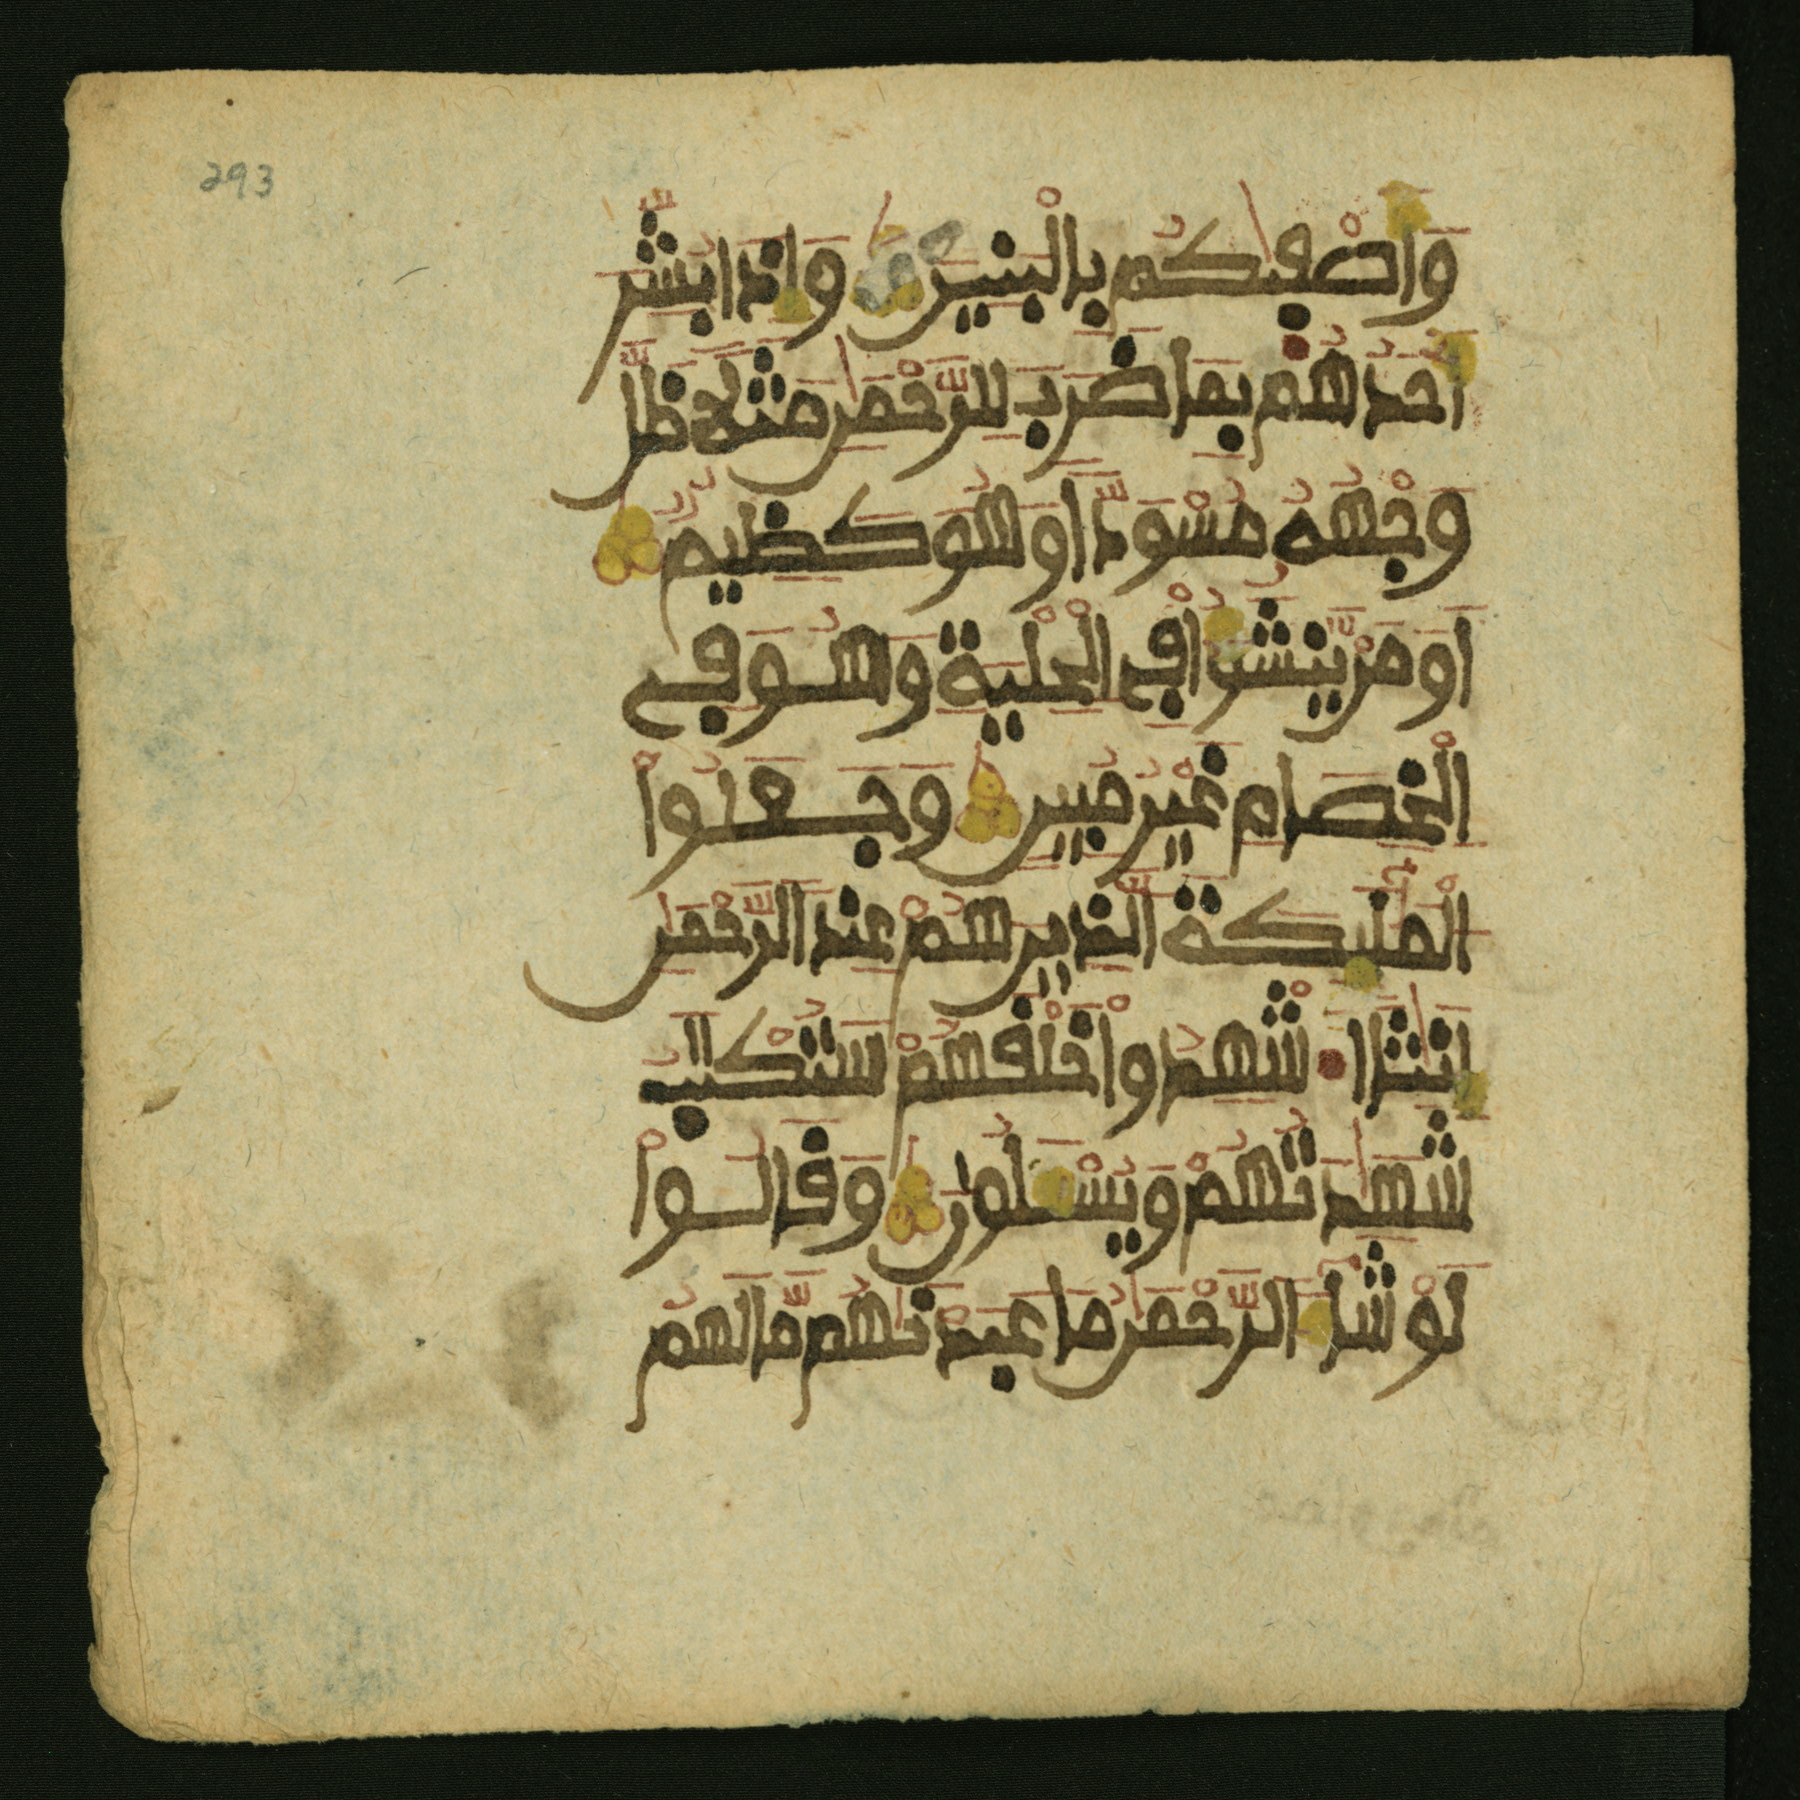 293
وَأَصْفِيكُم بِالْبَنِينَ وَإِذَا بُشِّرَ
أَحَدُهُم بِمَا ضَرَبَ لِلرَّحْمَٰنِ مَثَلًا ظَلَّ
وَجْهُهُ مُسْوَدًّا وَهُوَ كَظِيمٌ
أَوَمَنْ يَّنْشَؤُا فِي الْحِلْيَةِ وَهُوَ فِي
الْخِصَامِ غَيْرُ مُبِينٍ وَجَعَلُوا
الْمَلَٰٓئِكَةَ الَّذِينَ هُمْ عِندَ الرَّحْمَٰنِ
إِنَٰثًا أَشَهِدُوا خَلْقَهُمْ سَتُكْتَبُ
شَهَٰدَتُهُمْ وَيُسْـَٔلُونَ وَقَالُوا
لَوْ شَآءَ الرَّحْمَٰنُ مَا عَبَدْنَٰهُم مَّا لَهُم